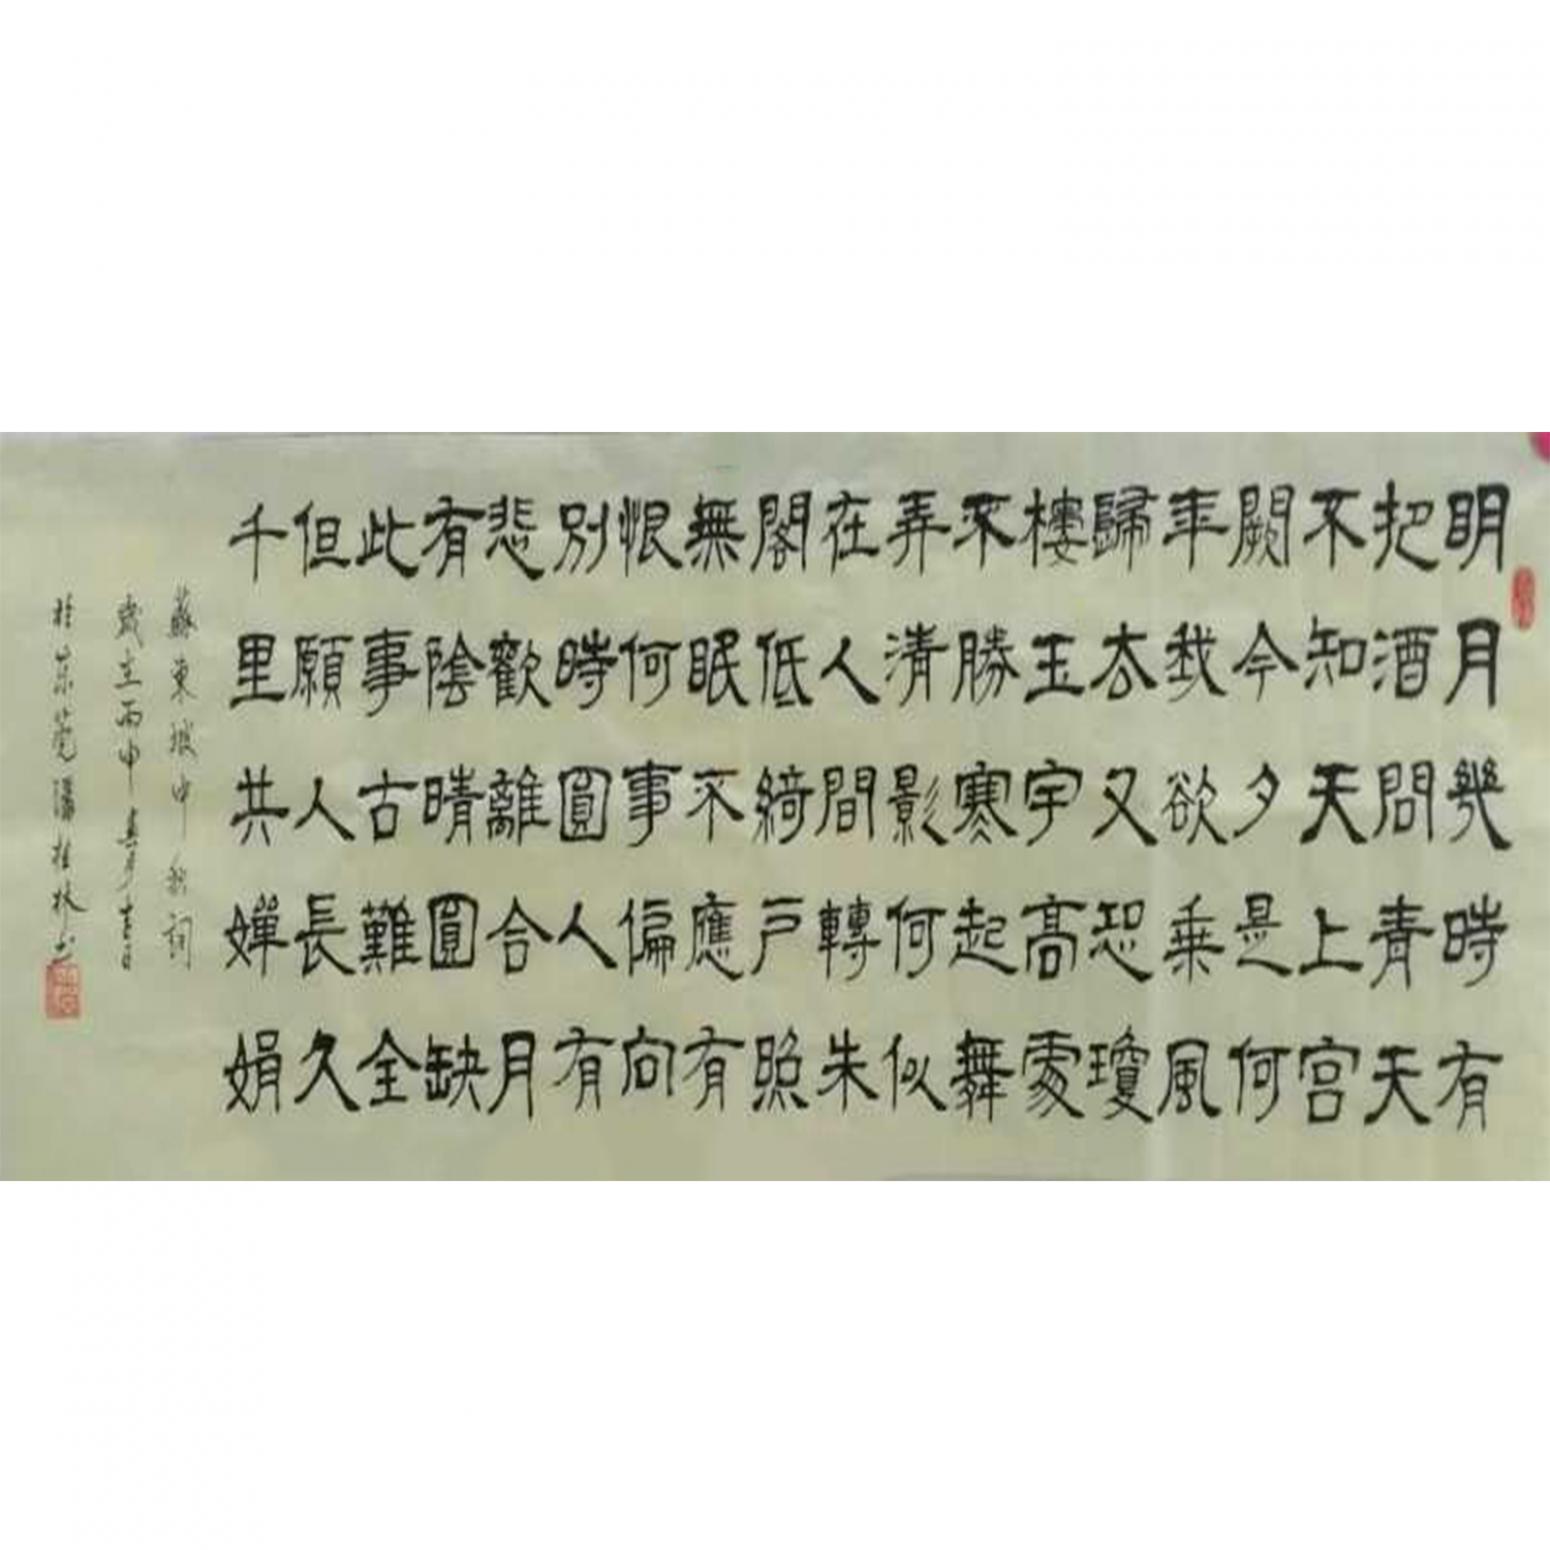 明月幾時有
把酒問青天
不知天上宫
闕今夕是何
年我欲乗風
歸去又恐瓊
樓玉宇高處
不勝寒起舞
弄清影何似
在人間轉朱
閣低綺户照
無眠不應有
恨何事偏向
别時圓人有
悲歡離合月
有陰晴圓缺
此事古難全
但願人長久
千里共嬋娟
蘇東坡中秋詞
歲在丙申夏月吉日
於東莞潘桂林书